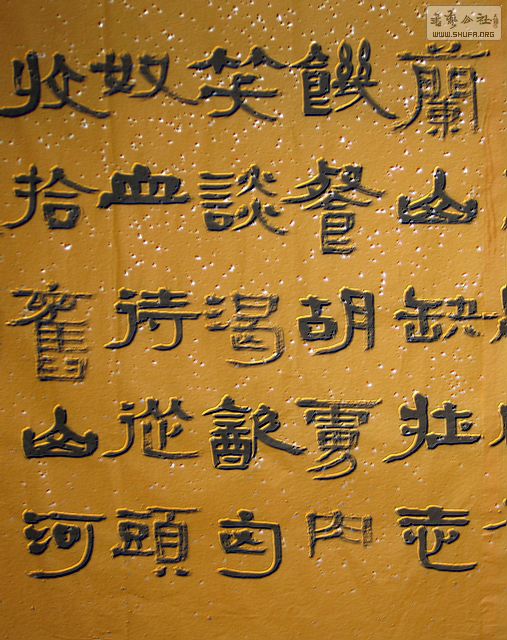 書藝公社
WWW.SHUFA.ORG
蘭山缺壯志
饑餐胡虜肉
笑談渴㱃匈
奴血待從頭
收拾舊山河